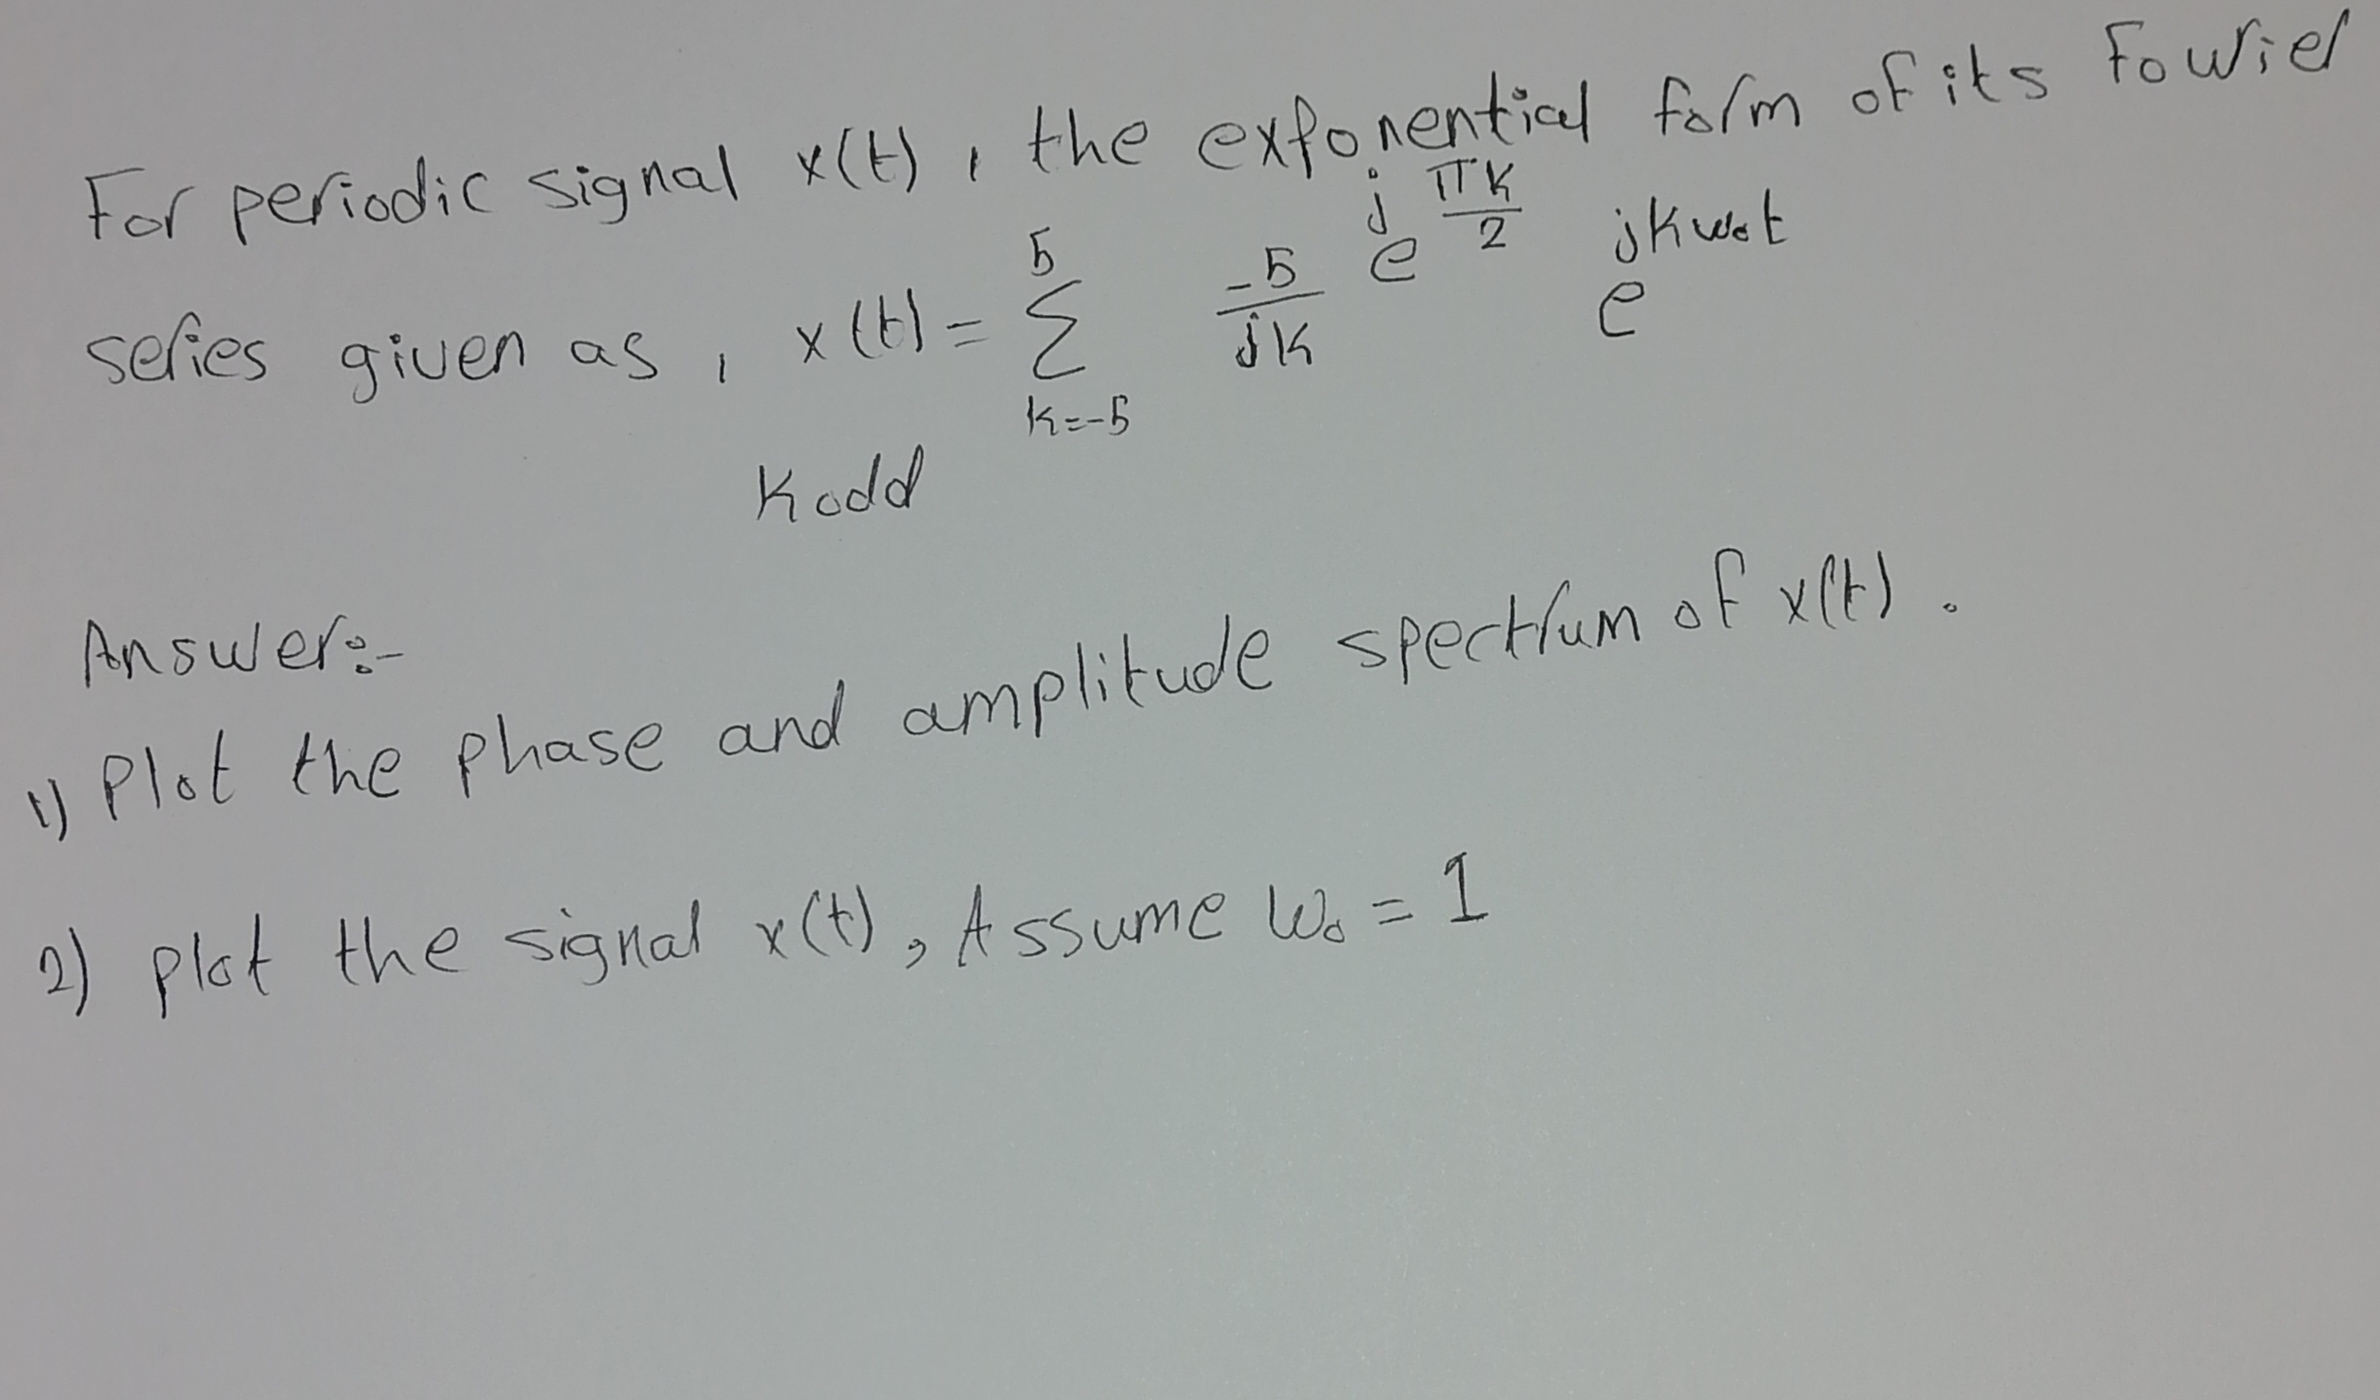 For periodic signal x(t), the exponential form of its Fourier
series given as, x(t) = 5 Σ k=-5 -5/jk e^(j πk/2) e^(jkw₀t)
K odd
Answer:-
1) Plot the phase and amplitude spectrum of x(t).
2) plot the signal x(t), Assume W₀ = 1